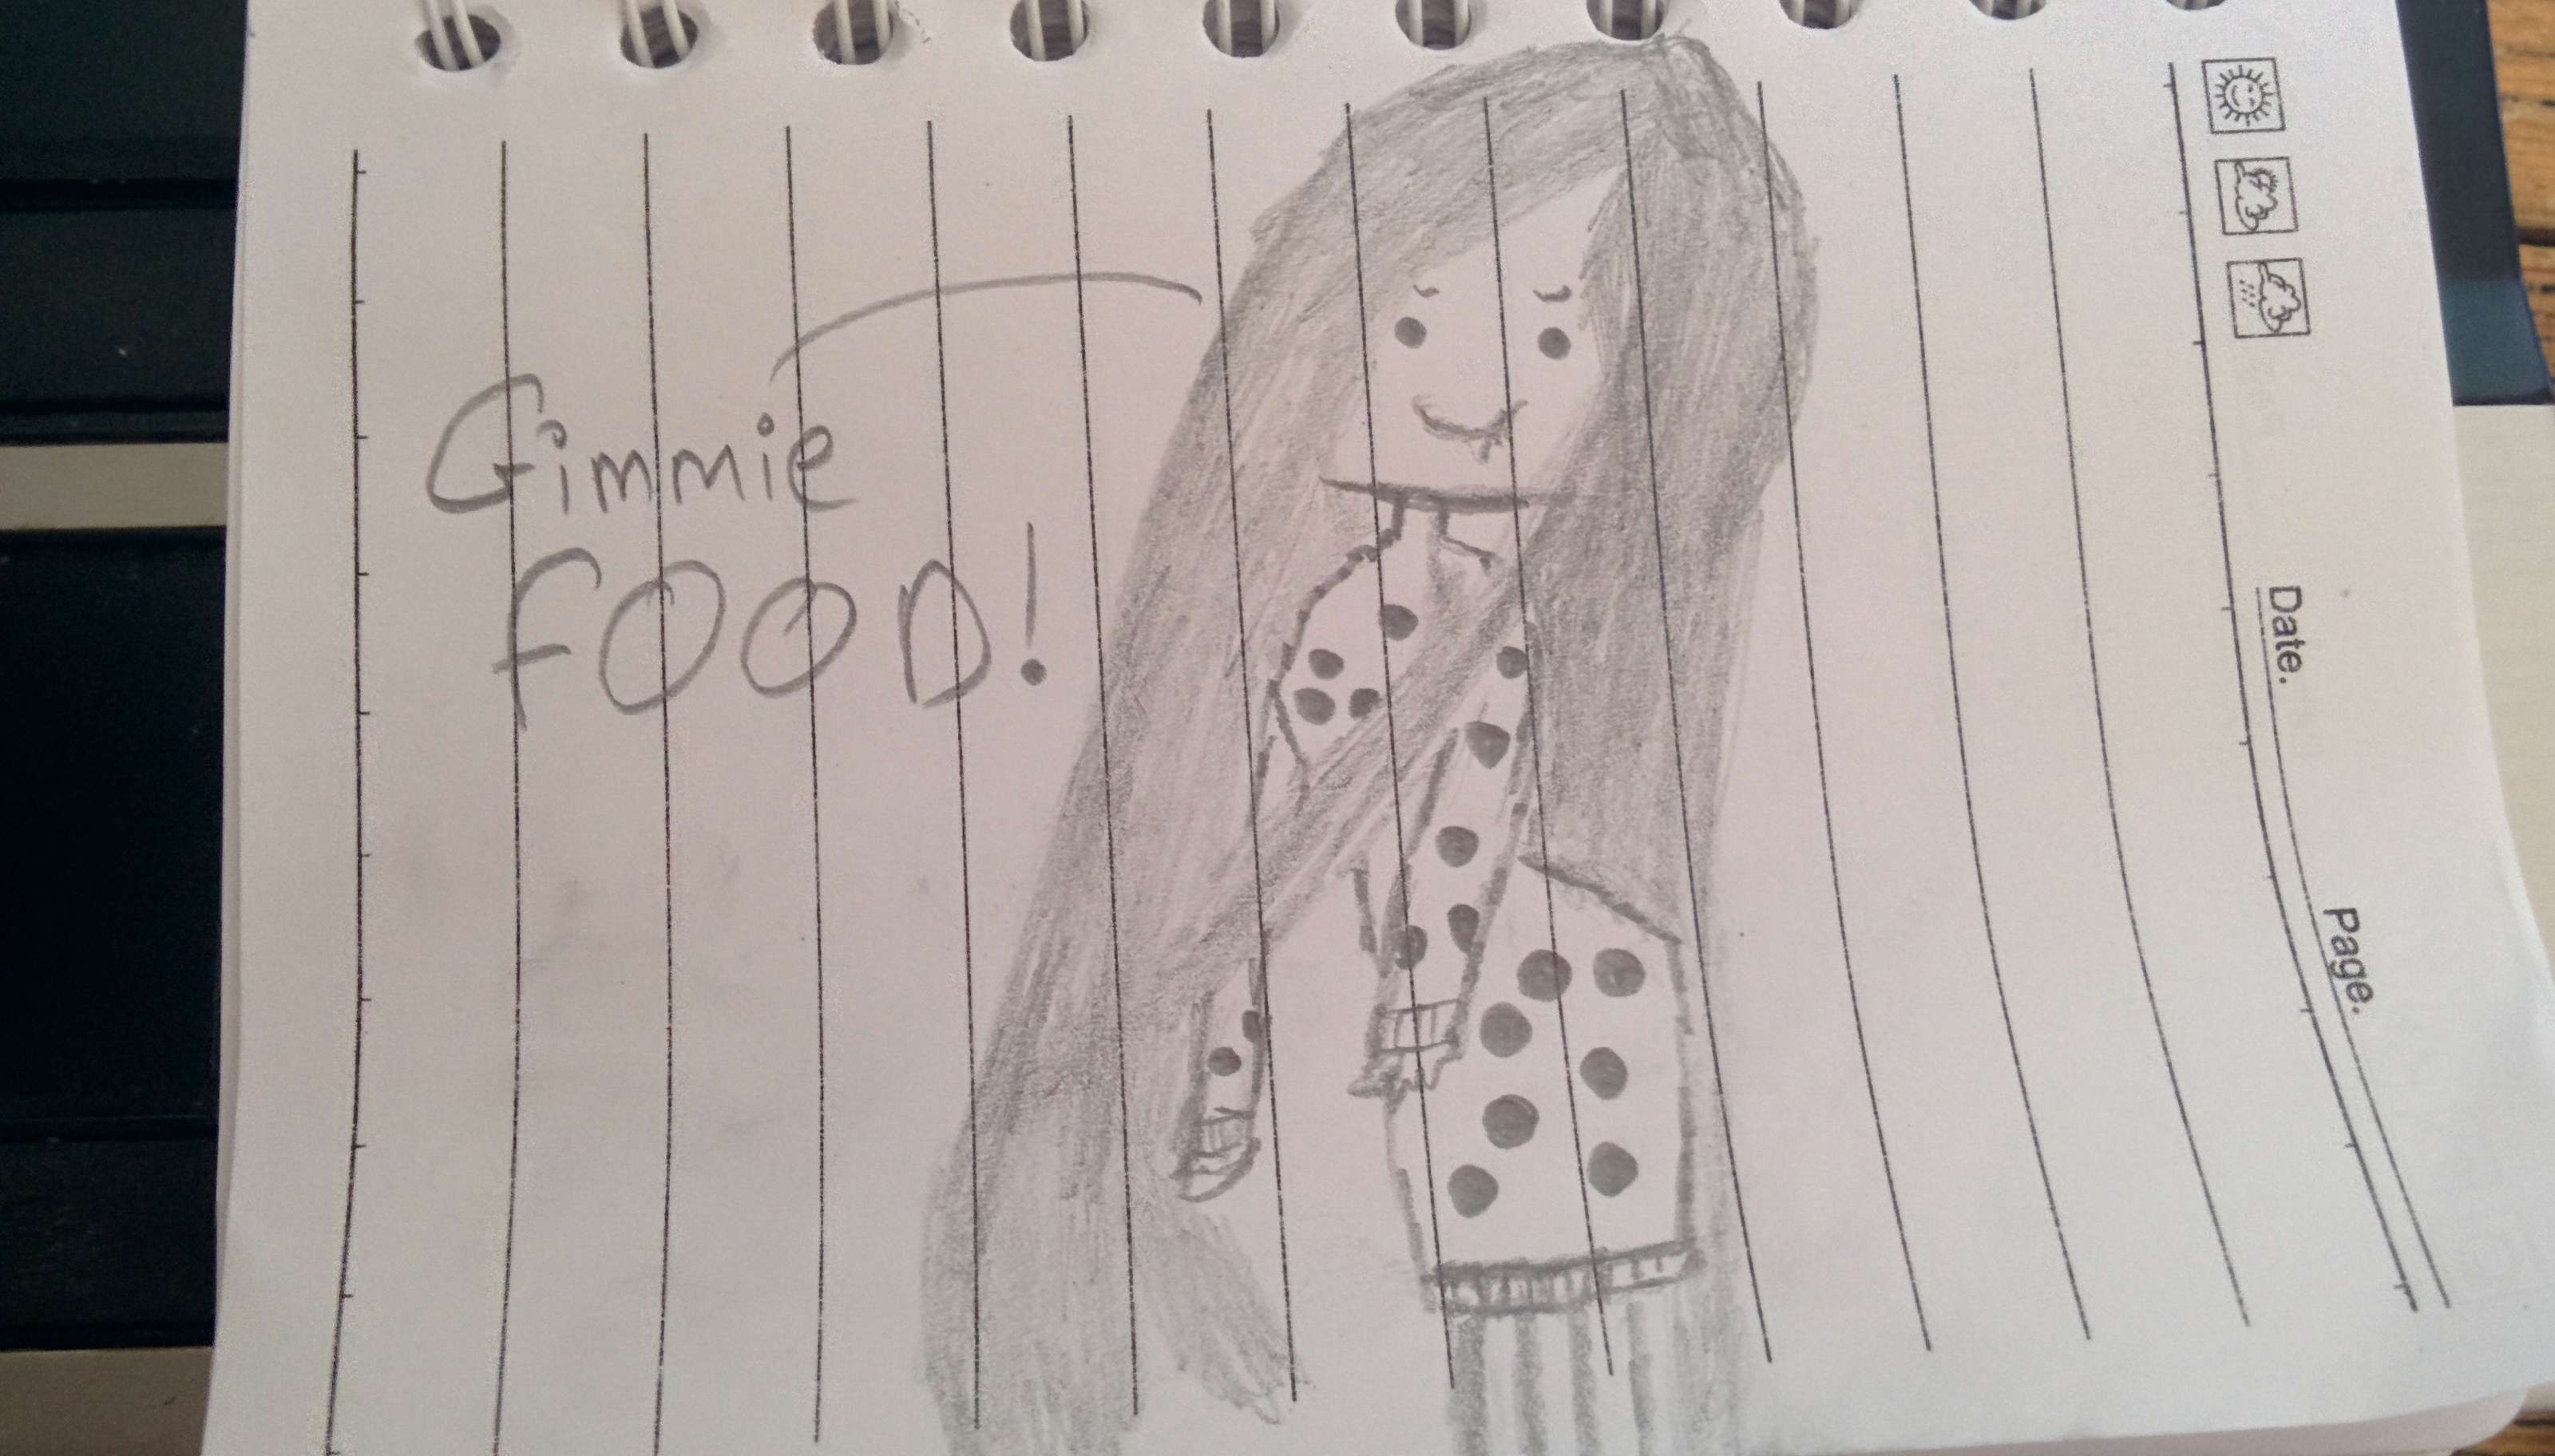 Gimmie
FOOD!
Date.
Page.